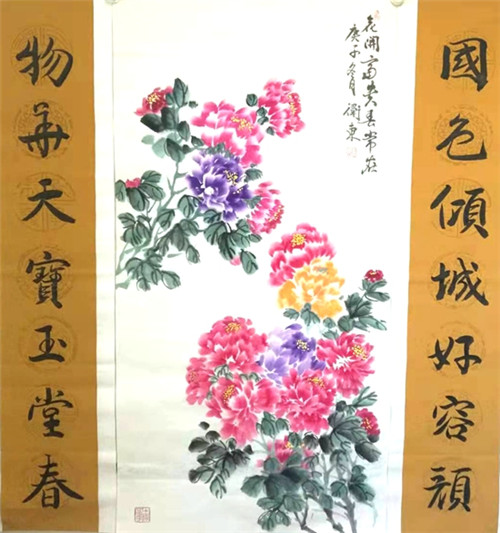 國色傾城好容顔
花開富貴春常在
庚子冬月衛東
物華天寶玉堂春